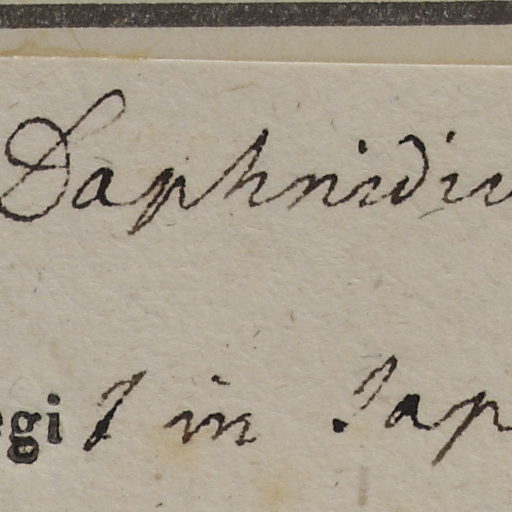 Daphnidiu
egi l in Jap